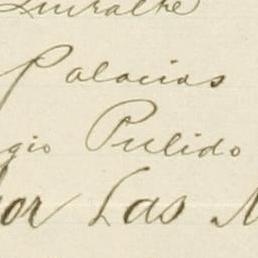 Palacios
gio Pulido
or Las